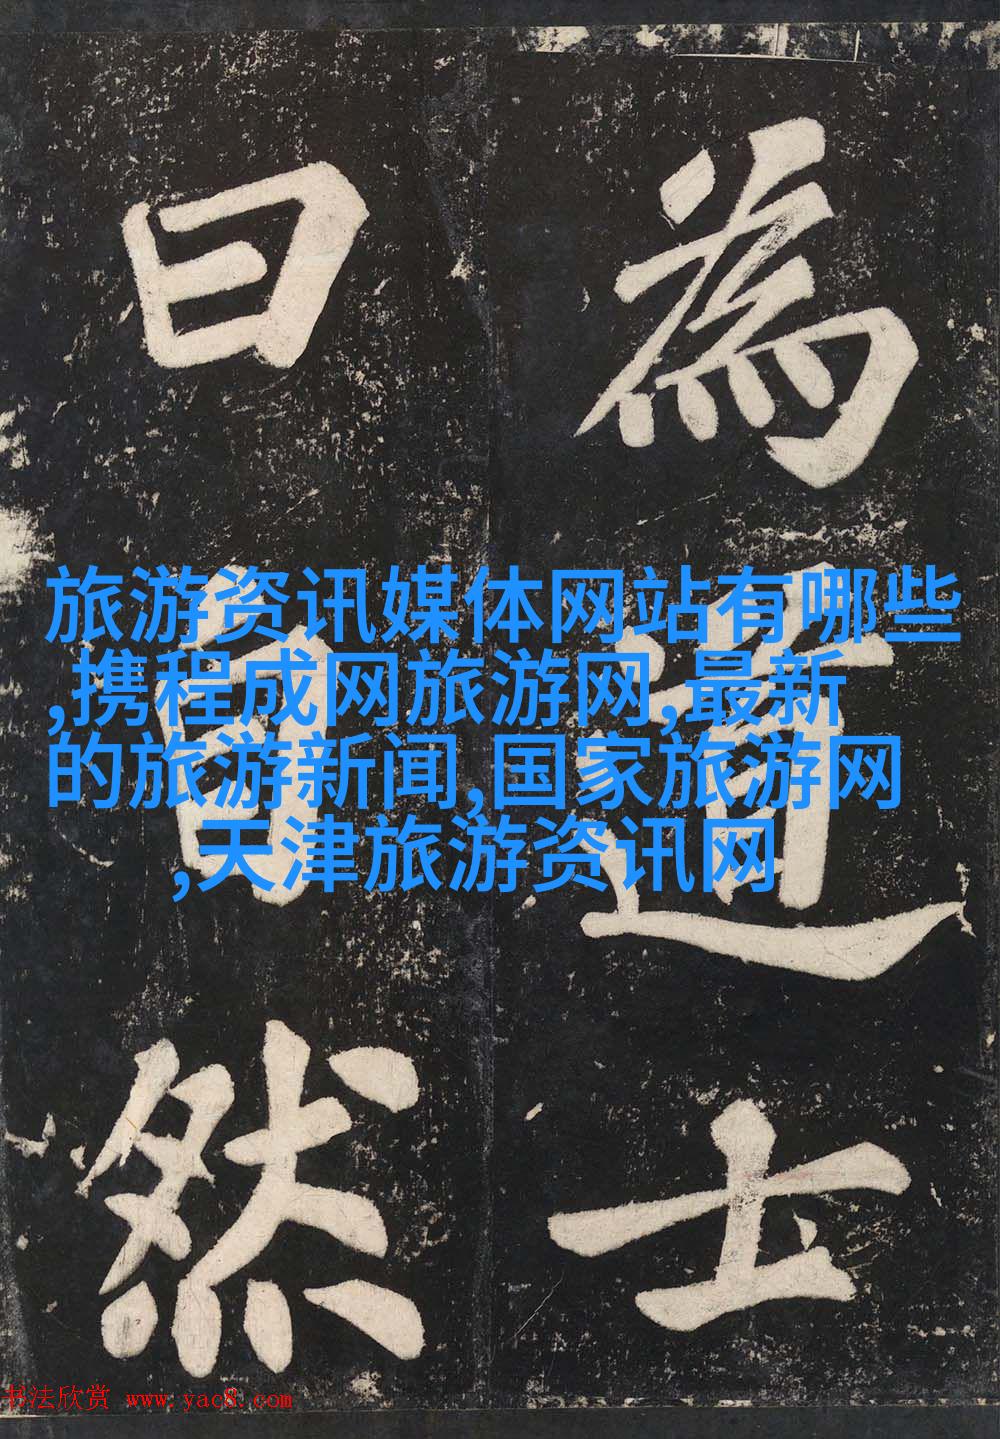 為道士
曰自然
旅游资讯媒体网站有哪些
,携程成网旅游网,最新
的旅游新闻,国家旅游网
,天津旅游资讯网
书法欣赏 www.yac8.com